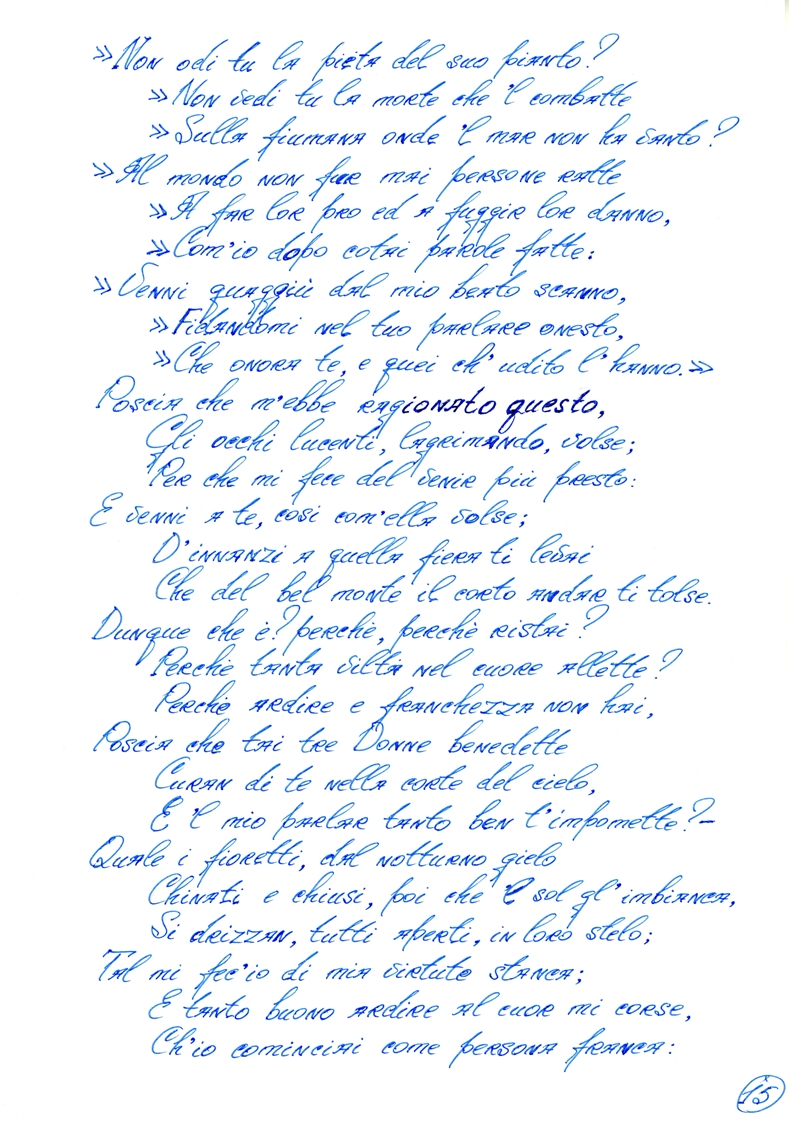 »Non odi tu la pièta del suo pianto?
»Non vedi tu la morte che 'l combatte
»Sulla fiumana onde 'l mar non ha vanto?
»Al mondo non fur mai persone ratte
»A far lor pro ed a fuggir lor danno,
»Com'io dopo cotai parole fatte:
»Venni quaggiù dal mio beato scanno,
»Fidandomi nel tuo parlare onesto,
»Che onora te, e quei ch'udito l'hanno.»
Poscia che m'ebbe ragionato questo,
Gli occhi lucenti, lagrimando, volse;
Per che mi fece del venir più presto:
E venni a te, così com'ella volse;
D'innanzi a quella fiera ti levai
Che del bel monte il corto andar ti tolse.
Dunque che è? perchè, perchè ristai?
Perchè tanta viltà nel cuore allette?
Perchè ardire e franchezza non hai,
Poscia che tai tre Donne benedette
Curan di te nella corte del cielo,
E 'l mio parlar tanto ben t'impomette?-
Quale i fioretti, dal notturno gielo
Chinati e chiusi, poi che 'l sol gl'imbianca,
Si drizzan, tutti aperti, in loro stelo;
Tal mi fec'io di mia virtute stanca;
E tanto buono ardire al cuor mi corse,
Ch'io cominciai come persona franca:
15